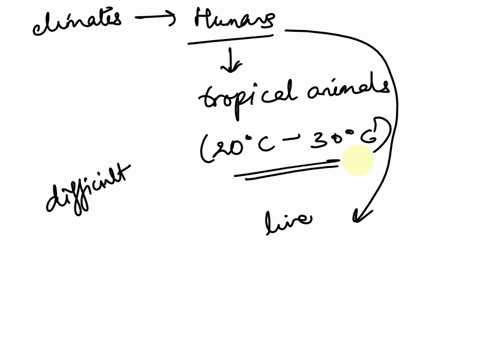 climates → Humans
tropical animals
(20°C - 30°C)
difficult
live